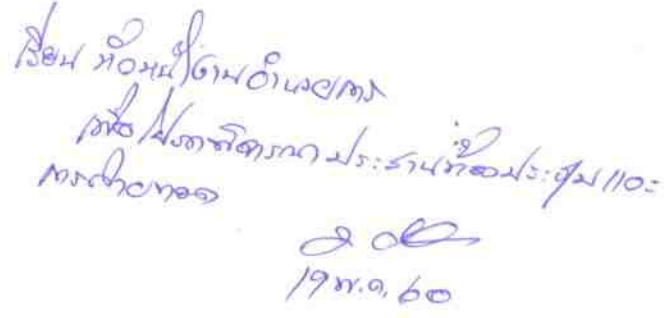 เรียน หัวหน้างานอำนวยการ
เพื่อโปรดพิจารณา ประสานห้องประชุม และ
การถ่ายทอด
19 พ.ค. 60